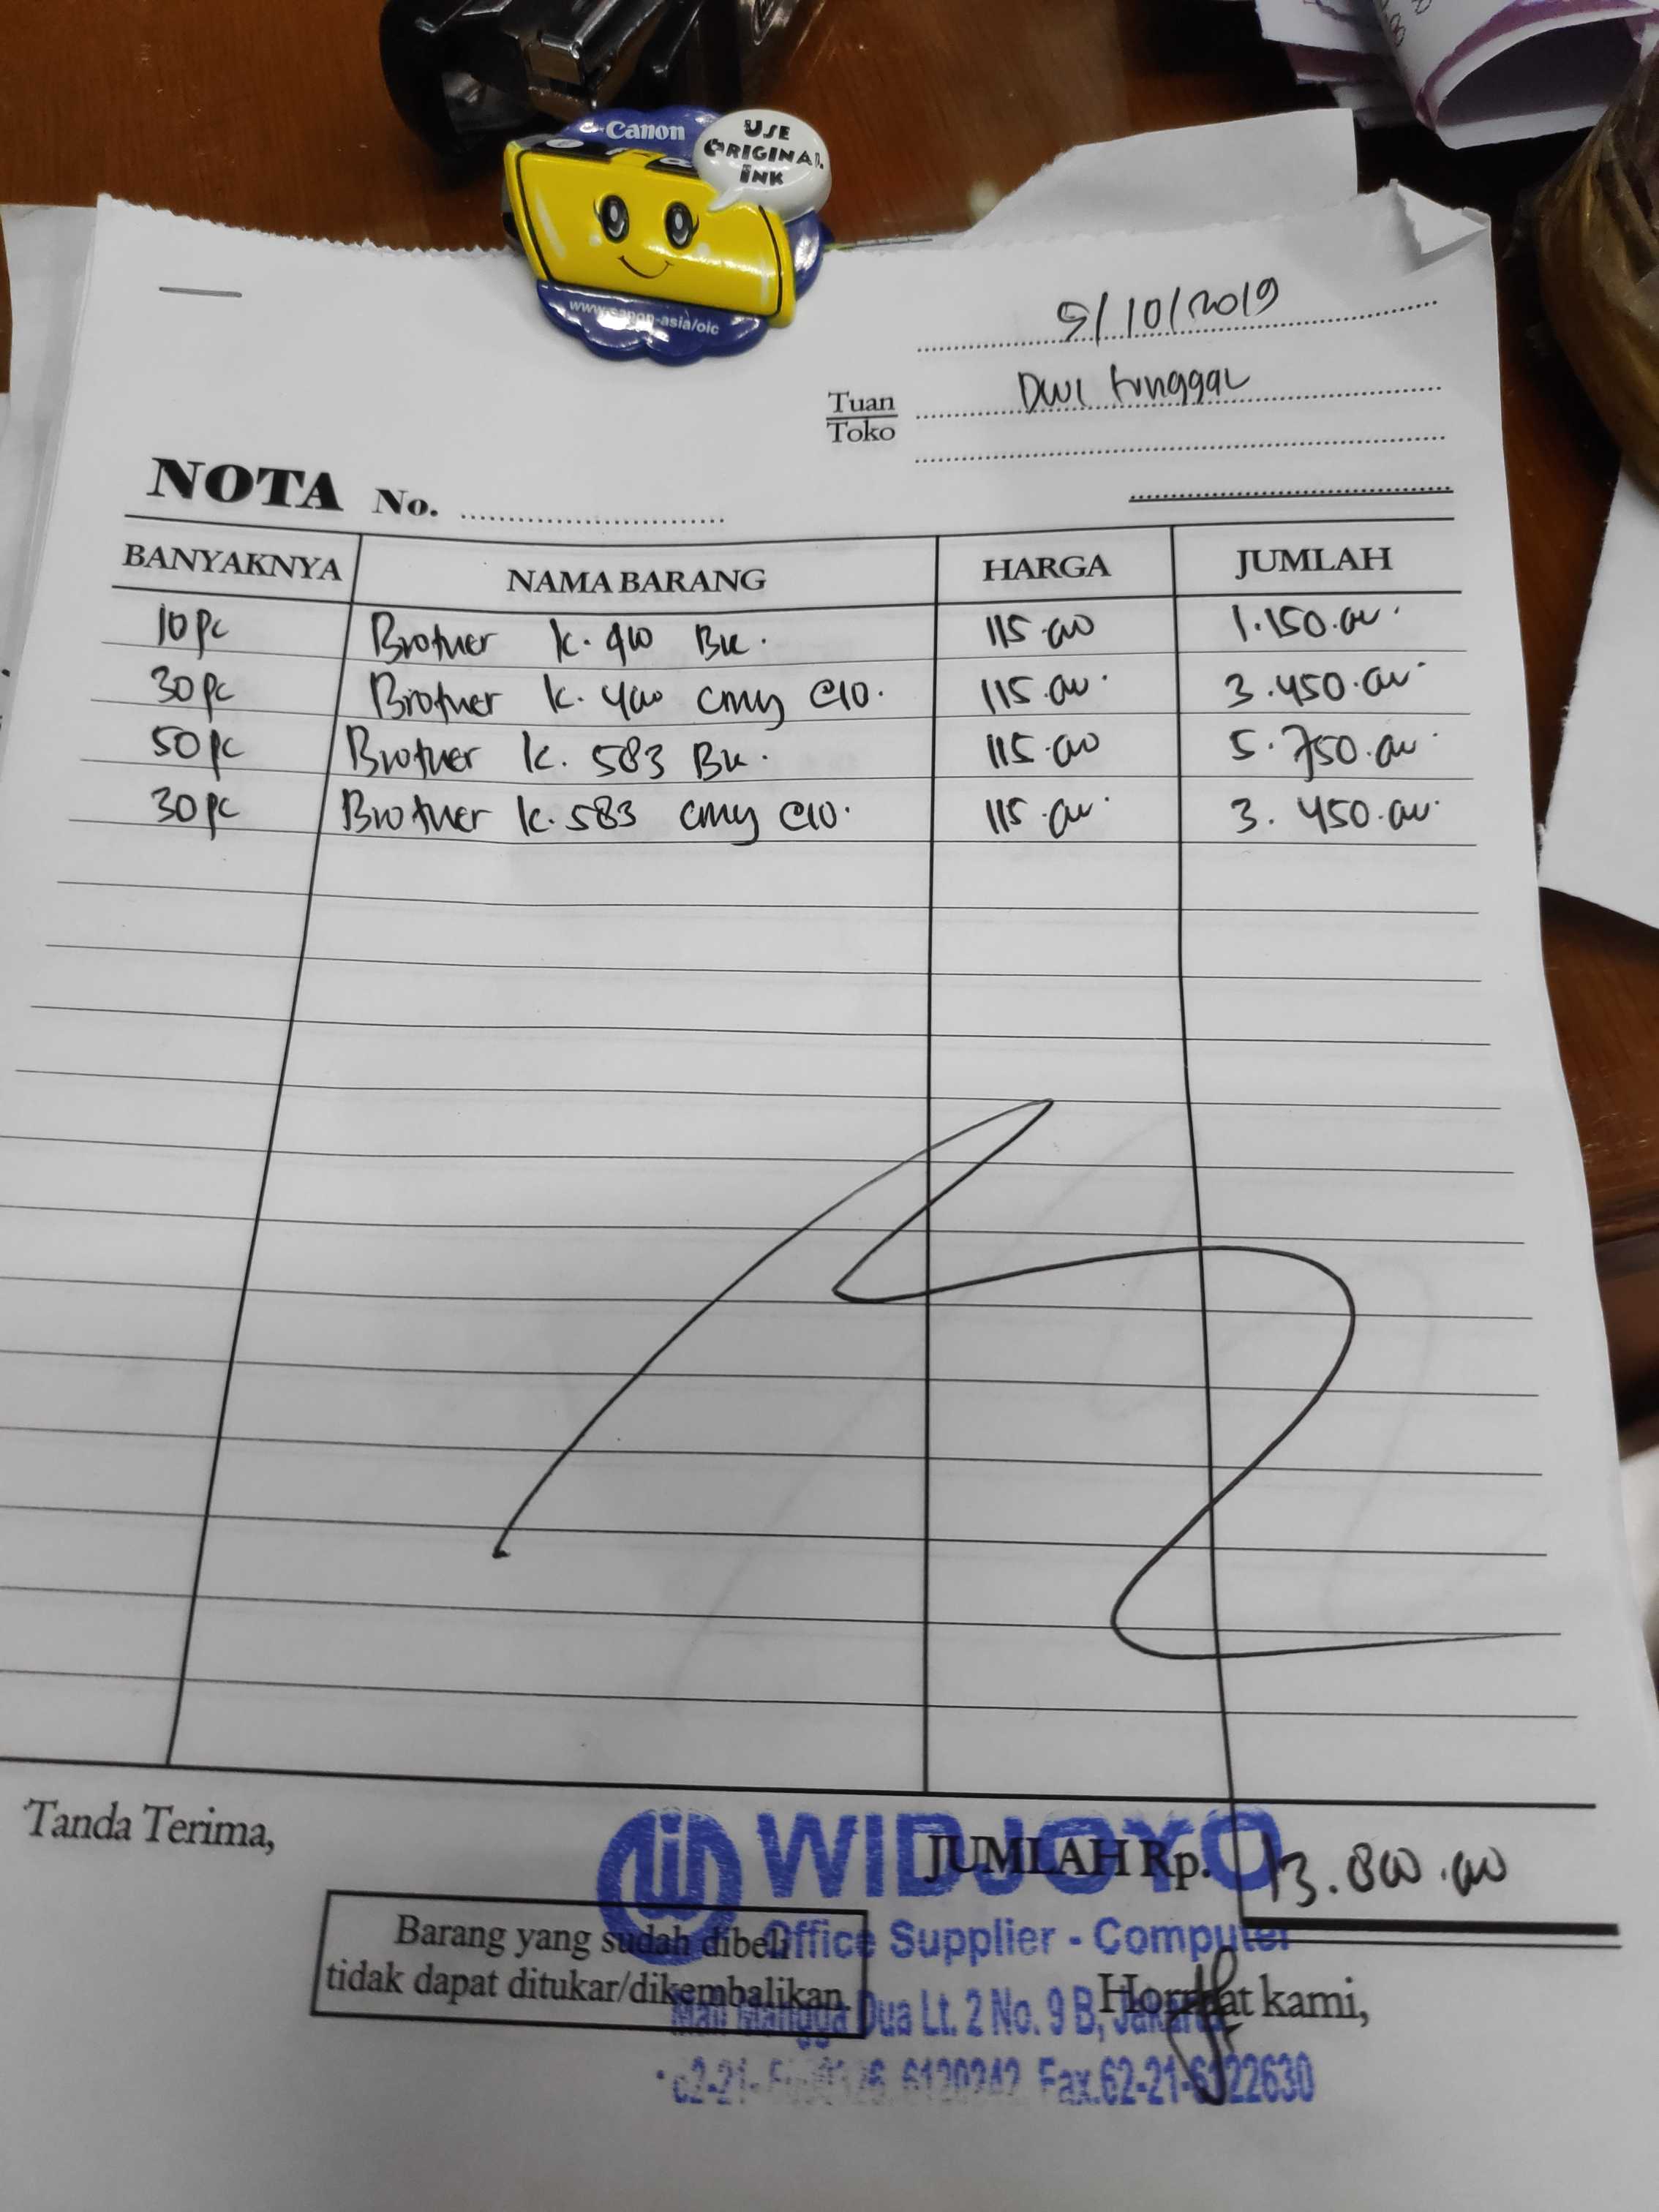 Canon
USE
ORIGINAL
INK
www.canon-asia/oic
5/10/2019
Tuan
Toko
Dwi tunggal
NOTA No.
BANYAKNYA NAMA BARANG HARGA JUMLAH
10 pc Brother k. Bk. 115.000 1.150.000
30 pc Brother k. 400 cmy @10. 115.000 3.450.000
50 pc Brother k. 583 Bk. 115.000 5.750.000
30 pc Brother k. 583 cmy @10. 115.000 3.450.000
Tanda Terima,
WIDJOYO
JUMLAH Rp. 13.800.000
Office Supplier - Computer
Barang yang sudah dibeli
tidak dapat ditukar/dikembalikan.
Hormat kami,
Mall Mangga Dua Lt. 2 No. 9 B, Jakarta
6120242 Fax.62-21-6122630